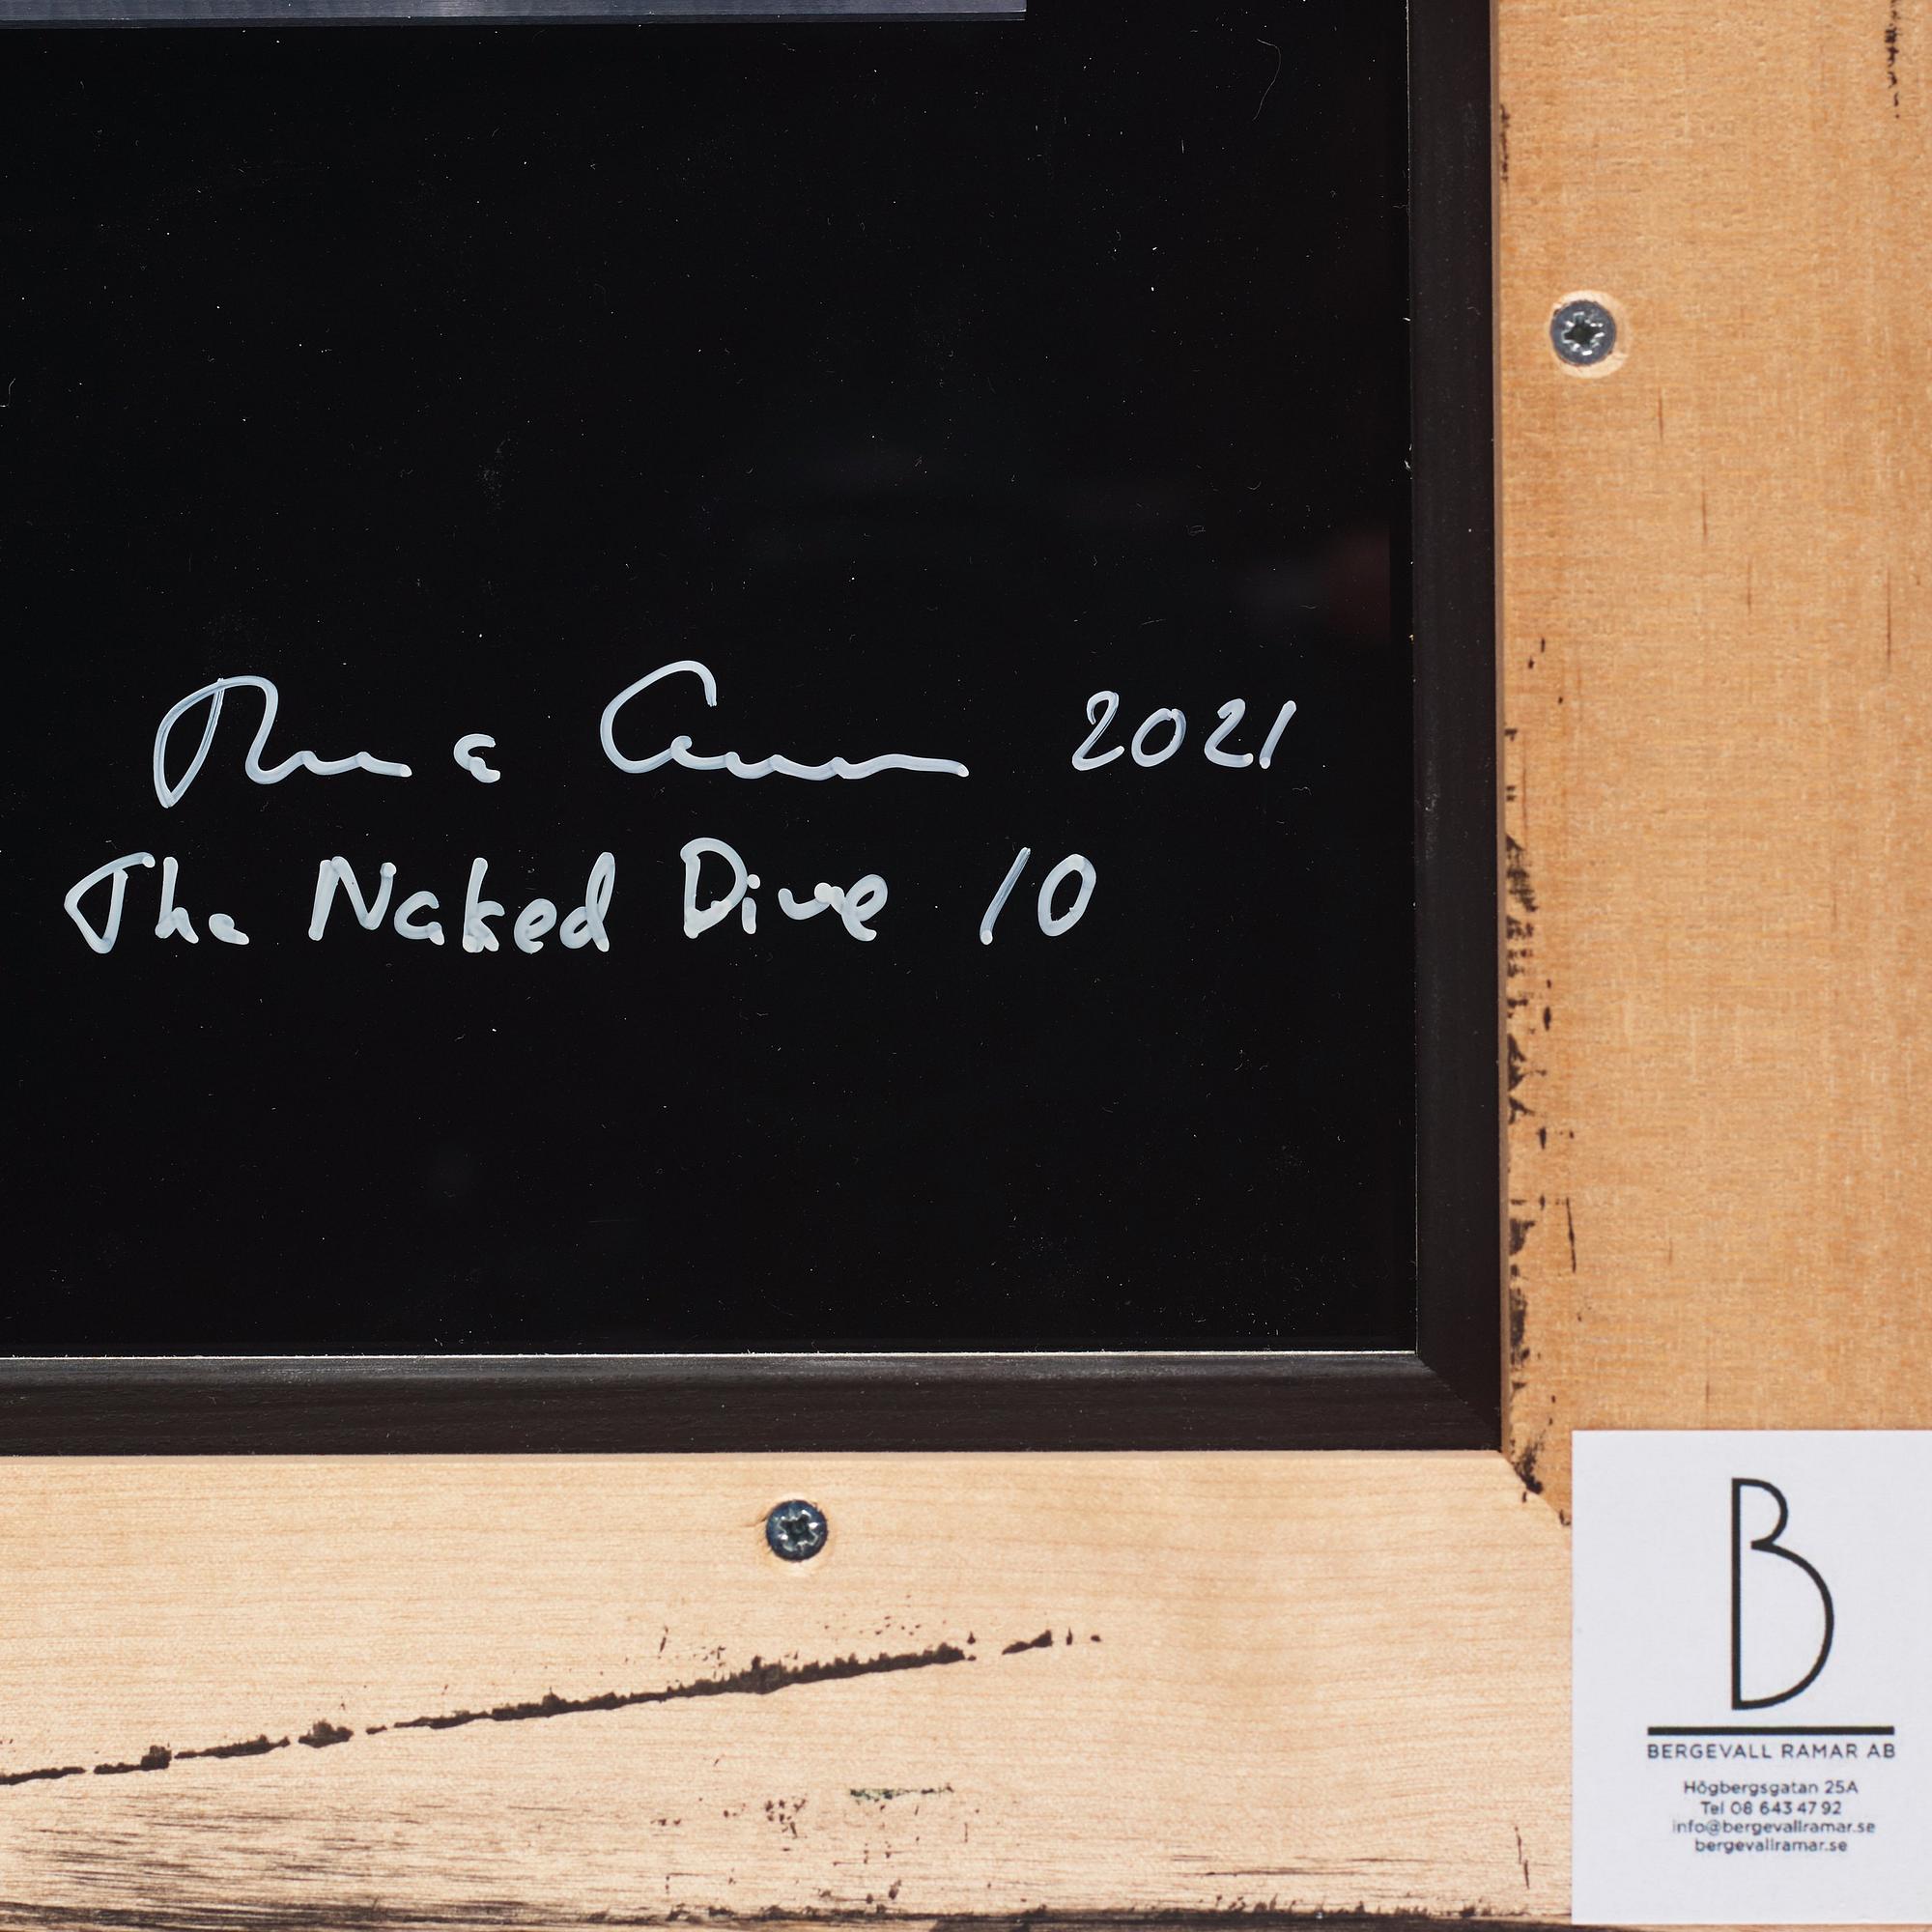 2021
The Naked Dive 10
B
BERGEVALL RAMAR AB
Högbergsgatan 25A
Tel 08 643 47 92
info@bergevallramar.se
bergevallramar.se